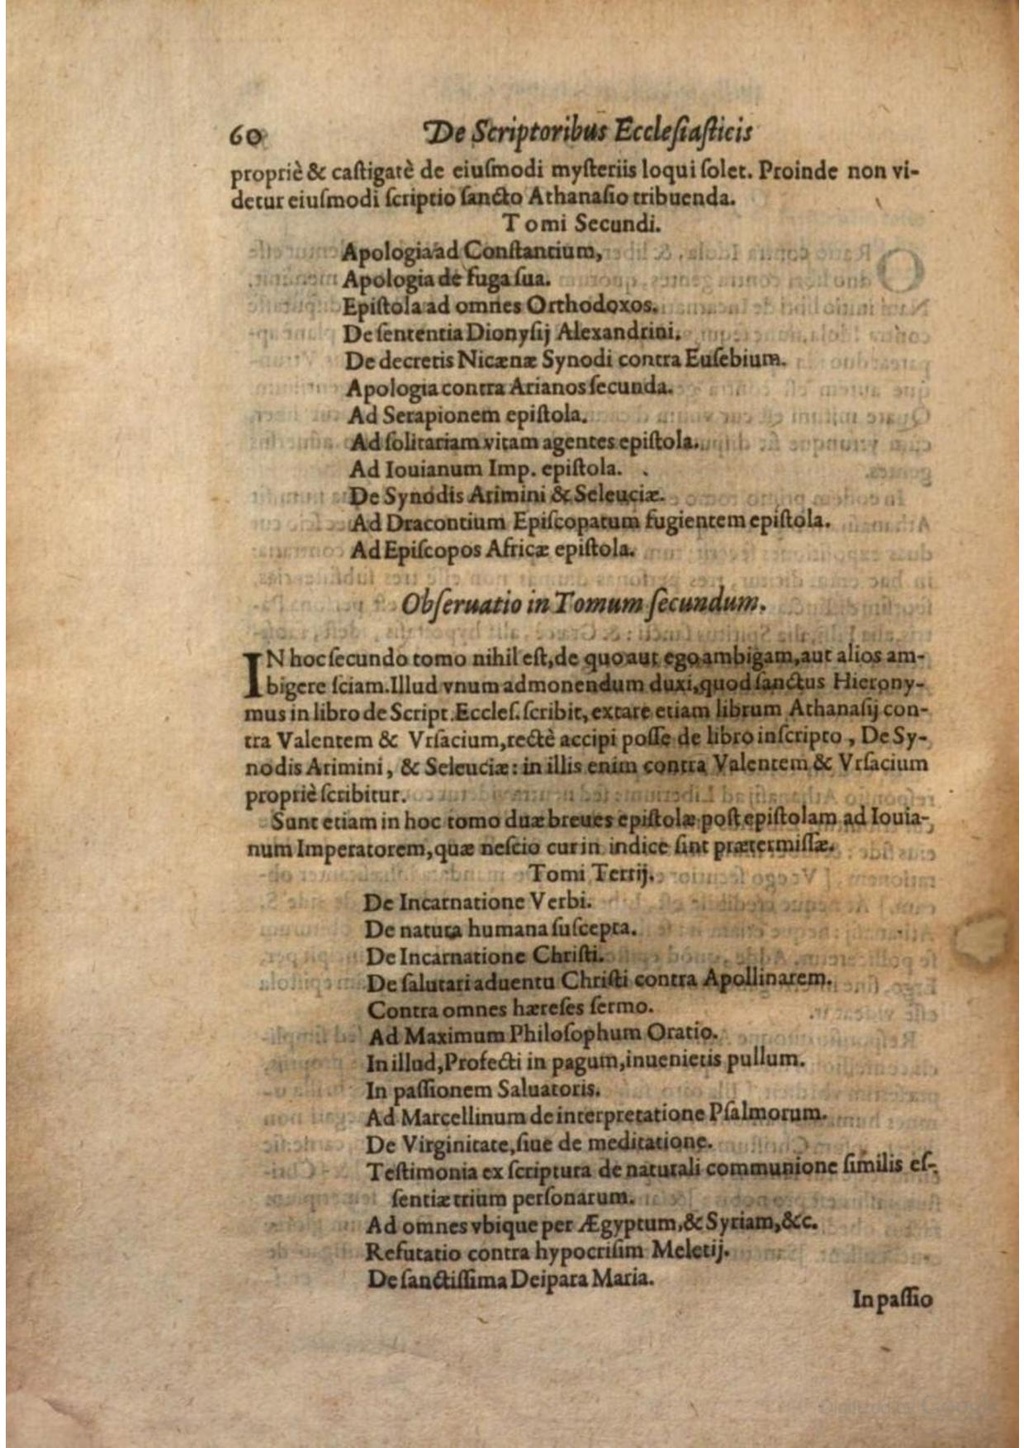 60 De Scriptoribus Ecclesiasticis
propriè & castigatè de eiusmodi mysteriis loqui solet. Proinde non vi-
detur eiusmodi scriptio sancto Athanasio tribuenda.
Tomi Secundi.
Apologia ad Constantium,
Apologia de fuga sua.
Epistola ad omnes Orthodoxos.
De sententia Dionysij Alexandrini.
De decretis Nicænæ Synodi contra Eusebium.
Apologia contra Arianos secunda.
Ad Serapionem epistola.
Ad solitariam vitam agentes epistola.
Ad Iouianum Imp. epistola.
De Synodis Arimini & Seleuciæ.
Ad Dracontium Episcopatum fugientem epistola.
Ad Episcopos Africæ epistola.
Obseruatio in Tomum secundum.
IN hoc secundo tomo nihil est, de quo aut ego ambigam, aut alios am-
bigere sciam. Illud vnum admonendum duxi, quod sanctus Hierony-
mus in libro de Script. Eccles. scribit, extare etiam librum Athanasij con-
tra Valentem & Vrsacium, rectè accipi posse de libro inscripto, De Sy-
nodis Arimini, & Seleuciæ: in illis enim contra Valentem & Vrsacium
propriè scribitur.
Sunt etiam in hoc tomo duæ breues epistolæ post epistolam ad Iouia-
num Imperatorem, quæ nescio cur in indice sint prætermissæ.
Tomi Tertij.
De Incarnatione Verbi.
De natura humana suscepta.
De Incarnatione Christi.
De salutari aduentu Christi contra Apollinarem.
Contra omnes hæreses sermo.
Ad Maximum Philosophum Oratio.
In illud, Profecti in pagum, inuenietis pullum.
In passionem Saluatoris.
Ad Marcellinum de interpretatione Psalmorum.
De Virginitate, siue de meditatione.
Testimonia ex scriptura de naturali communione similis es-
sentiæ trium personarum.
Ad omnes vbique per Ægyptum, & Syriam, &c.
Refutatio contra hypocrisim Meletij.
De sanctissima Deipara Maria.
In passio